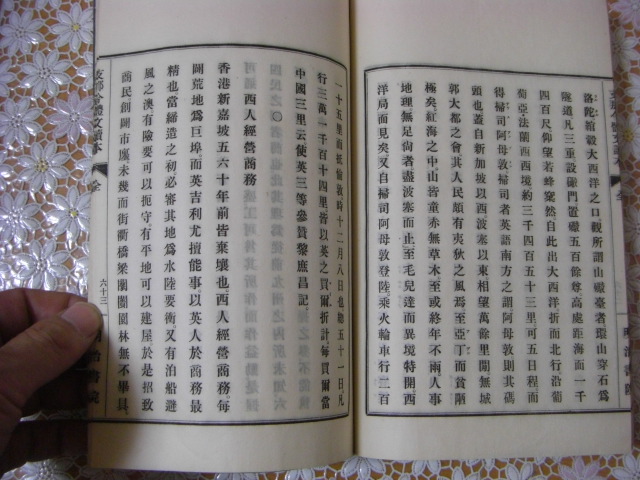 洛陀縮轂大西洋之口觀所謂山礟臺者環山穿石爲
隧道凡三重設礟門置礟五百餘尊高處距海面一千
四百尺仰望若蜂窠然自此出大西洋折而北行沿葡
萄亞法蘭西西境約三千五百五十三里可五日程而
得掃司阿母敦掃司者英語南方之謂阿母敦則其碼
頭也蓋自新加坡以西波塞以東相望萬餘里閒無城
郭大都之會其人民頗有夷狄之風焉至亞丁而貧陋
極矣紅海之中山皆童赤無草木至或終年不雨人事
地理無足尙者盡波塞而止至毛兒達而異境特開西
洋局面見矣又自掃司阿母敦登陸乘火輪車行二百
二十五里而抵倫敦時十二月八日也總五十一日凡
行三萬一千百十四里皆以英之買爾折計每買爾當
中國三里云使英三等參贊黎庶昌記
西人經營商務
香港新嘉坡五六十年前皆棄壤也西人經營商務每
闢荒地爲巨埠而英吉利尤擅能事以英人於商務尤
精也當締造之初必審其地爲水陸要衝又有泊船避
風之澳有險要可以扼守有平地可以建屋於是招致
商民創闢市廛未幾而街衢橋梁闤闠園林無不畢具
支那今體文讀本
全
六十三
明治書院